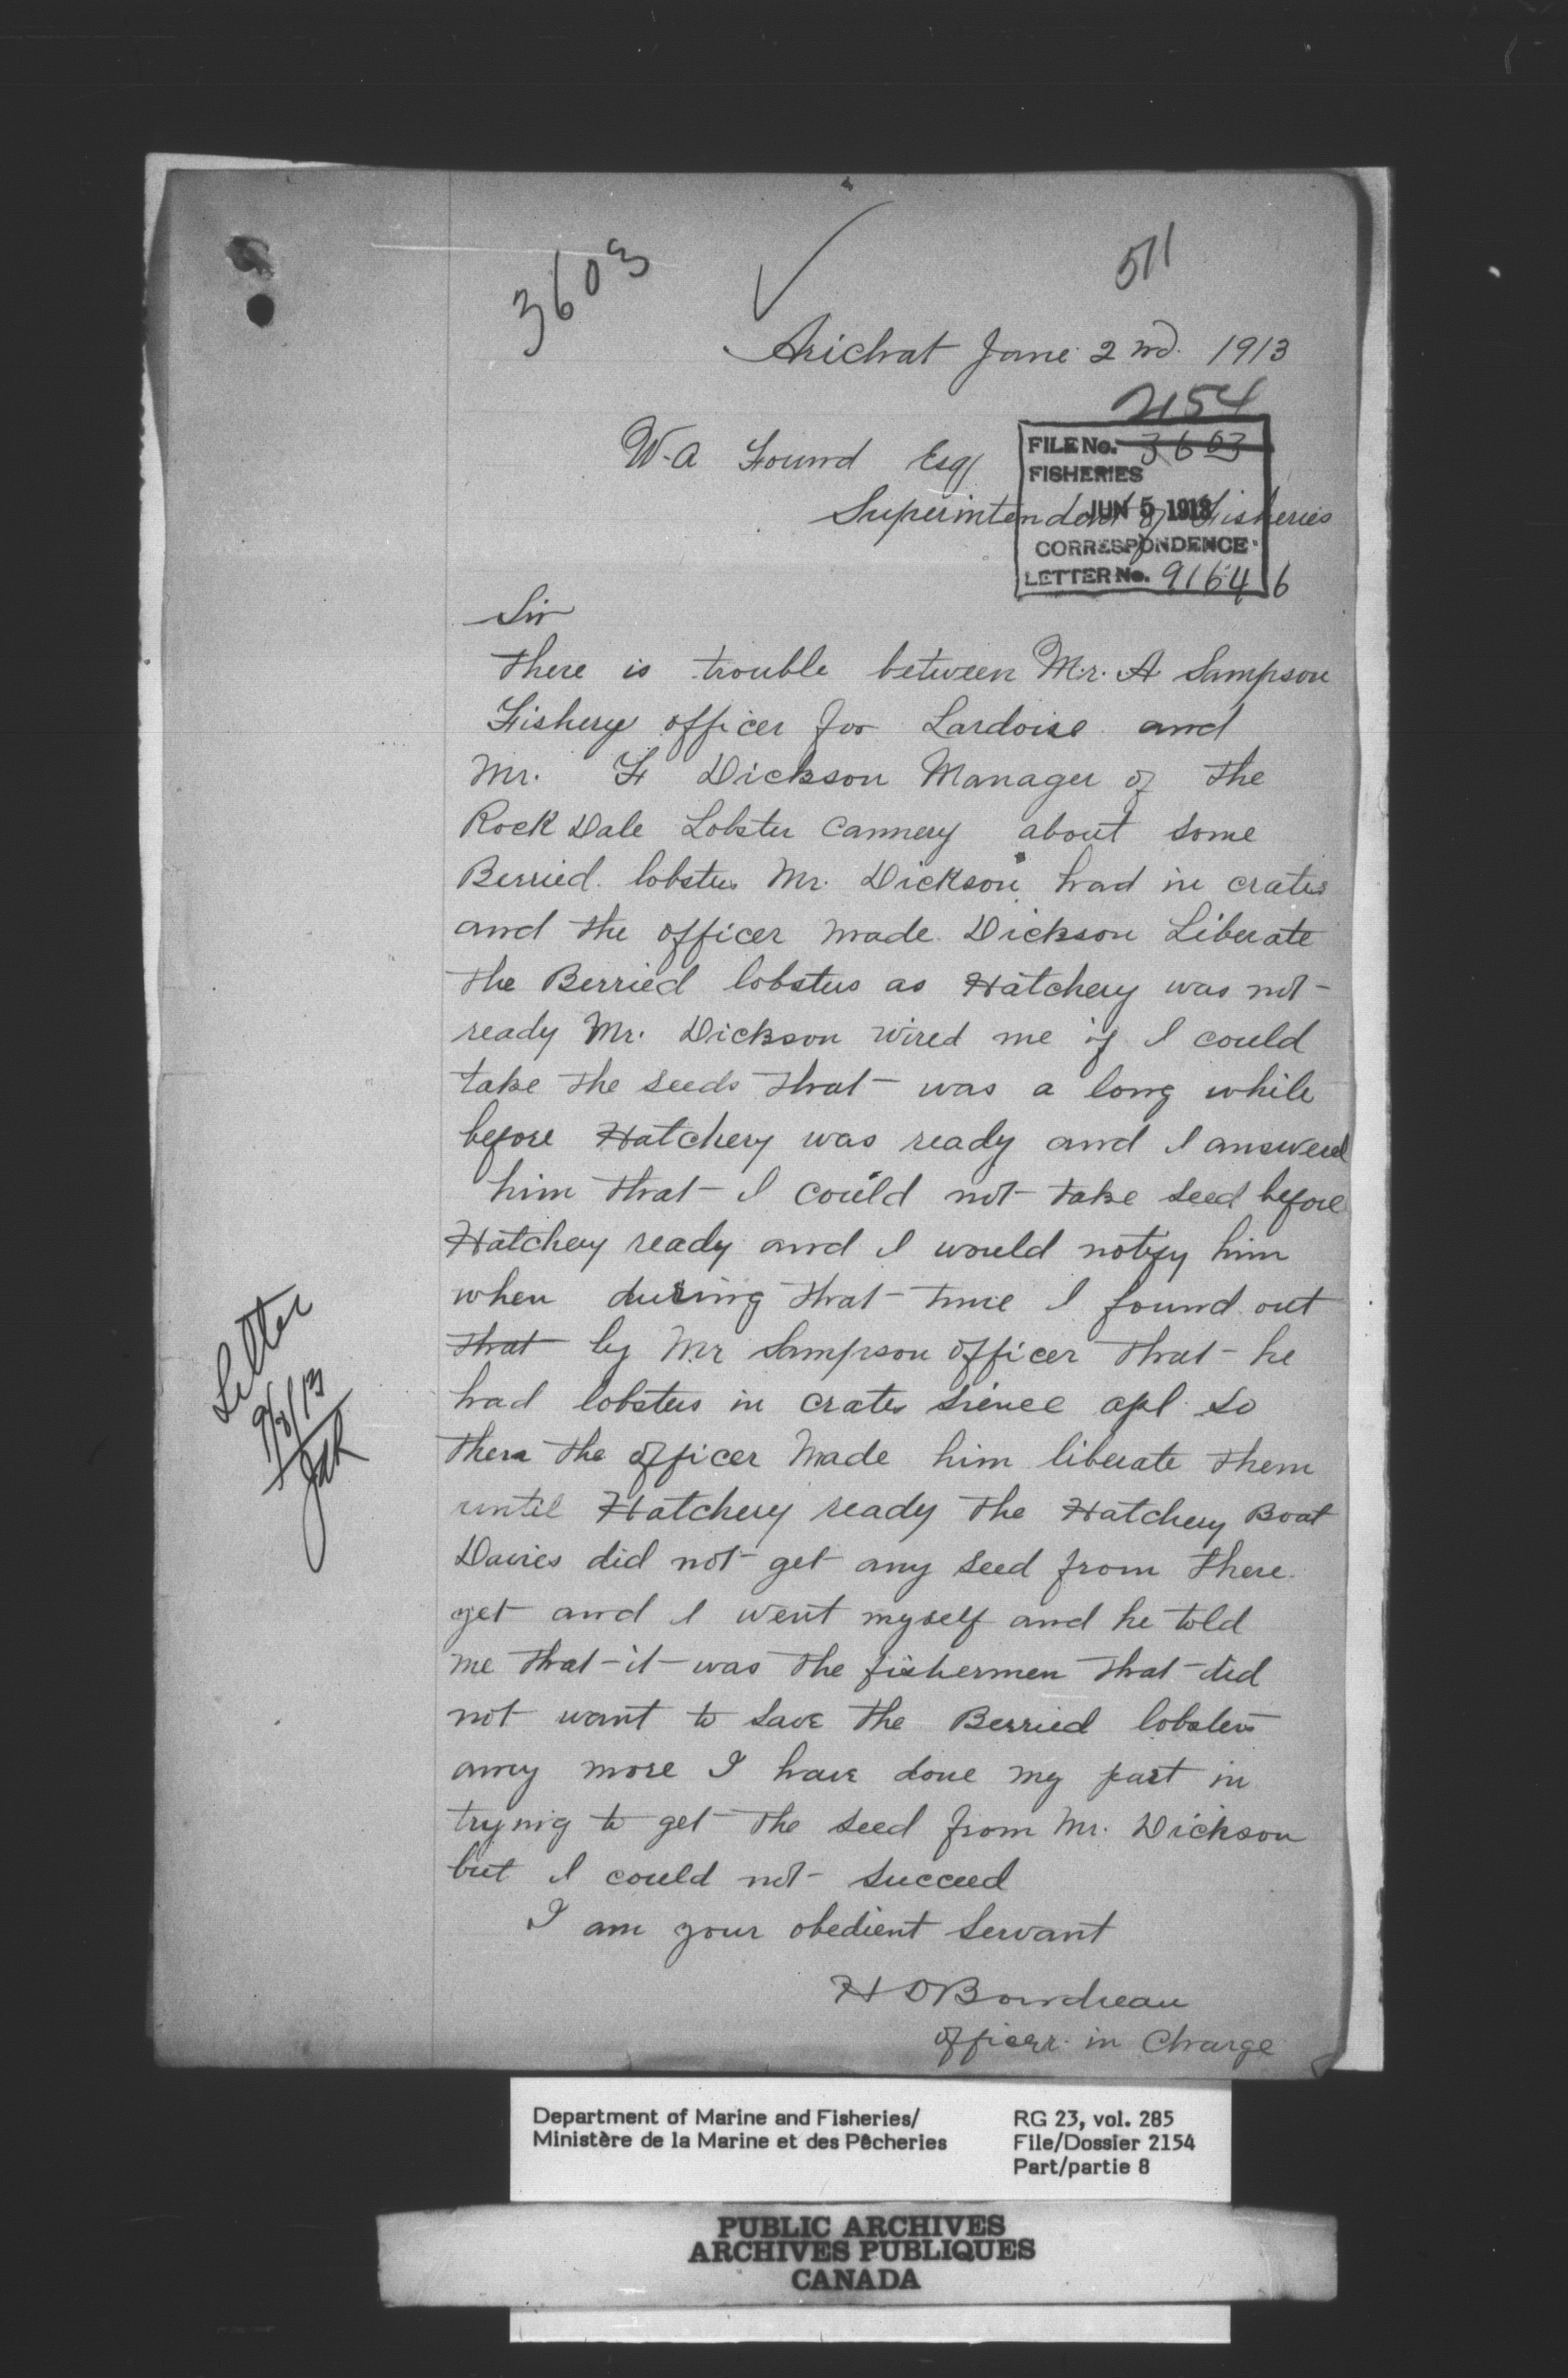 3603
511
Arichat June 2nd. 1913
2154
W. A Found Esq
FILE No. 3603
FISHERIES
Superintendent of Fisheries
JUN 5 1913
CORRESPONDENCE
LETTER No. 91646
Sir
There is trouble between Mr. A Sampson
Fishery officer for Lardoise and
Mr. F Dickson Manager of the
Rock Dale Lobster Cannery about some
Berried lobsters Mr. Dickson had in crates
and the officer made Dickson Liberate
the Berried lobsters as Hatchery was not
ready Mr. Dickson wired me if I could
take the seeds that was a long while
before Hatchery was ready and I answered
him that I could not take seed before
Hatchery ready and I would notify him
when during that time I found out
that by Mr Sampson officer that he
had lobsters in crates sience apl so
then the officer made him liberate them
until Hatchery ready the Hatchery Boat
Davies did not get any seed from there
yet and I went myself and he told
me that it was the fishermen that did
not want to save the Berried lobsters
any more I have done my part in
trying to get the seed from Mr. Dickson
but I could not succeed
I am your obedient servant
H D Boudreau
officer in Charge
Letter
Department of Marine and Fisheries/
Ministère de la Marine et des Pêcheries
RG 23, vol. 285
File/Dossier 2154
Part/partie 8
PUBLIC ARCHIVES
ARCHIVES PUBLIQUES
CANADA